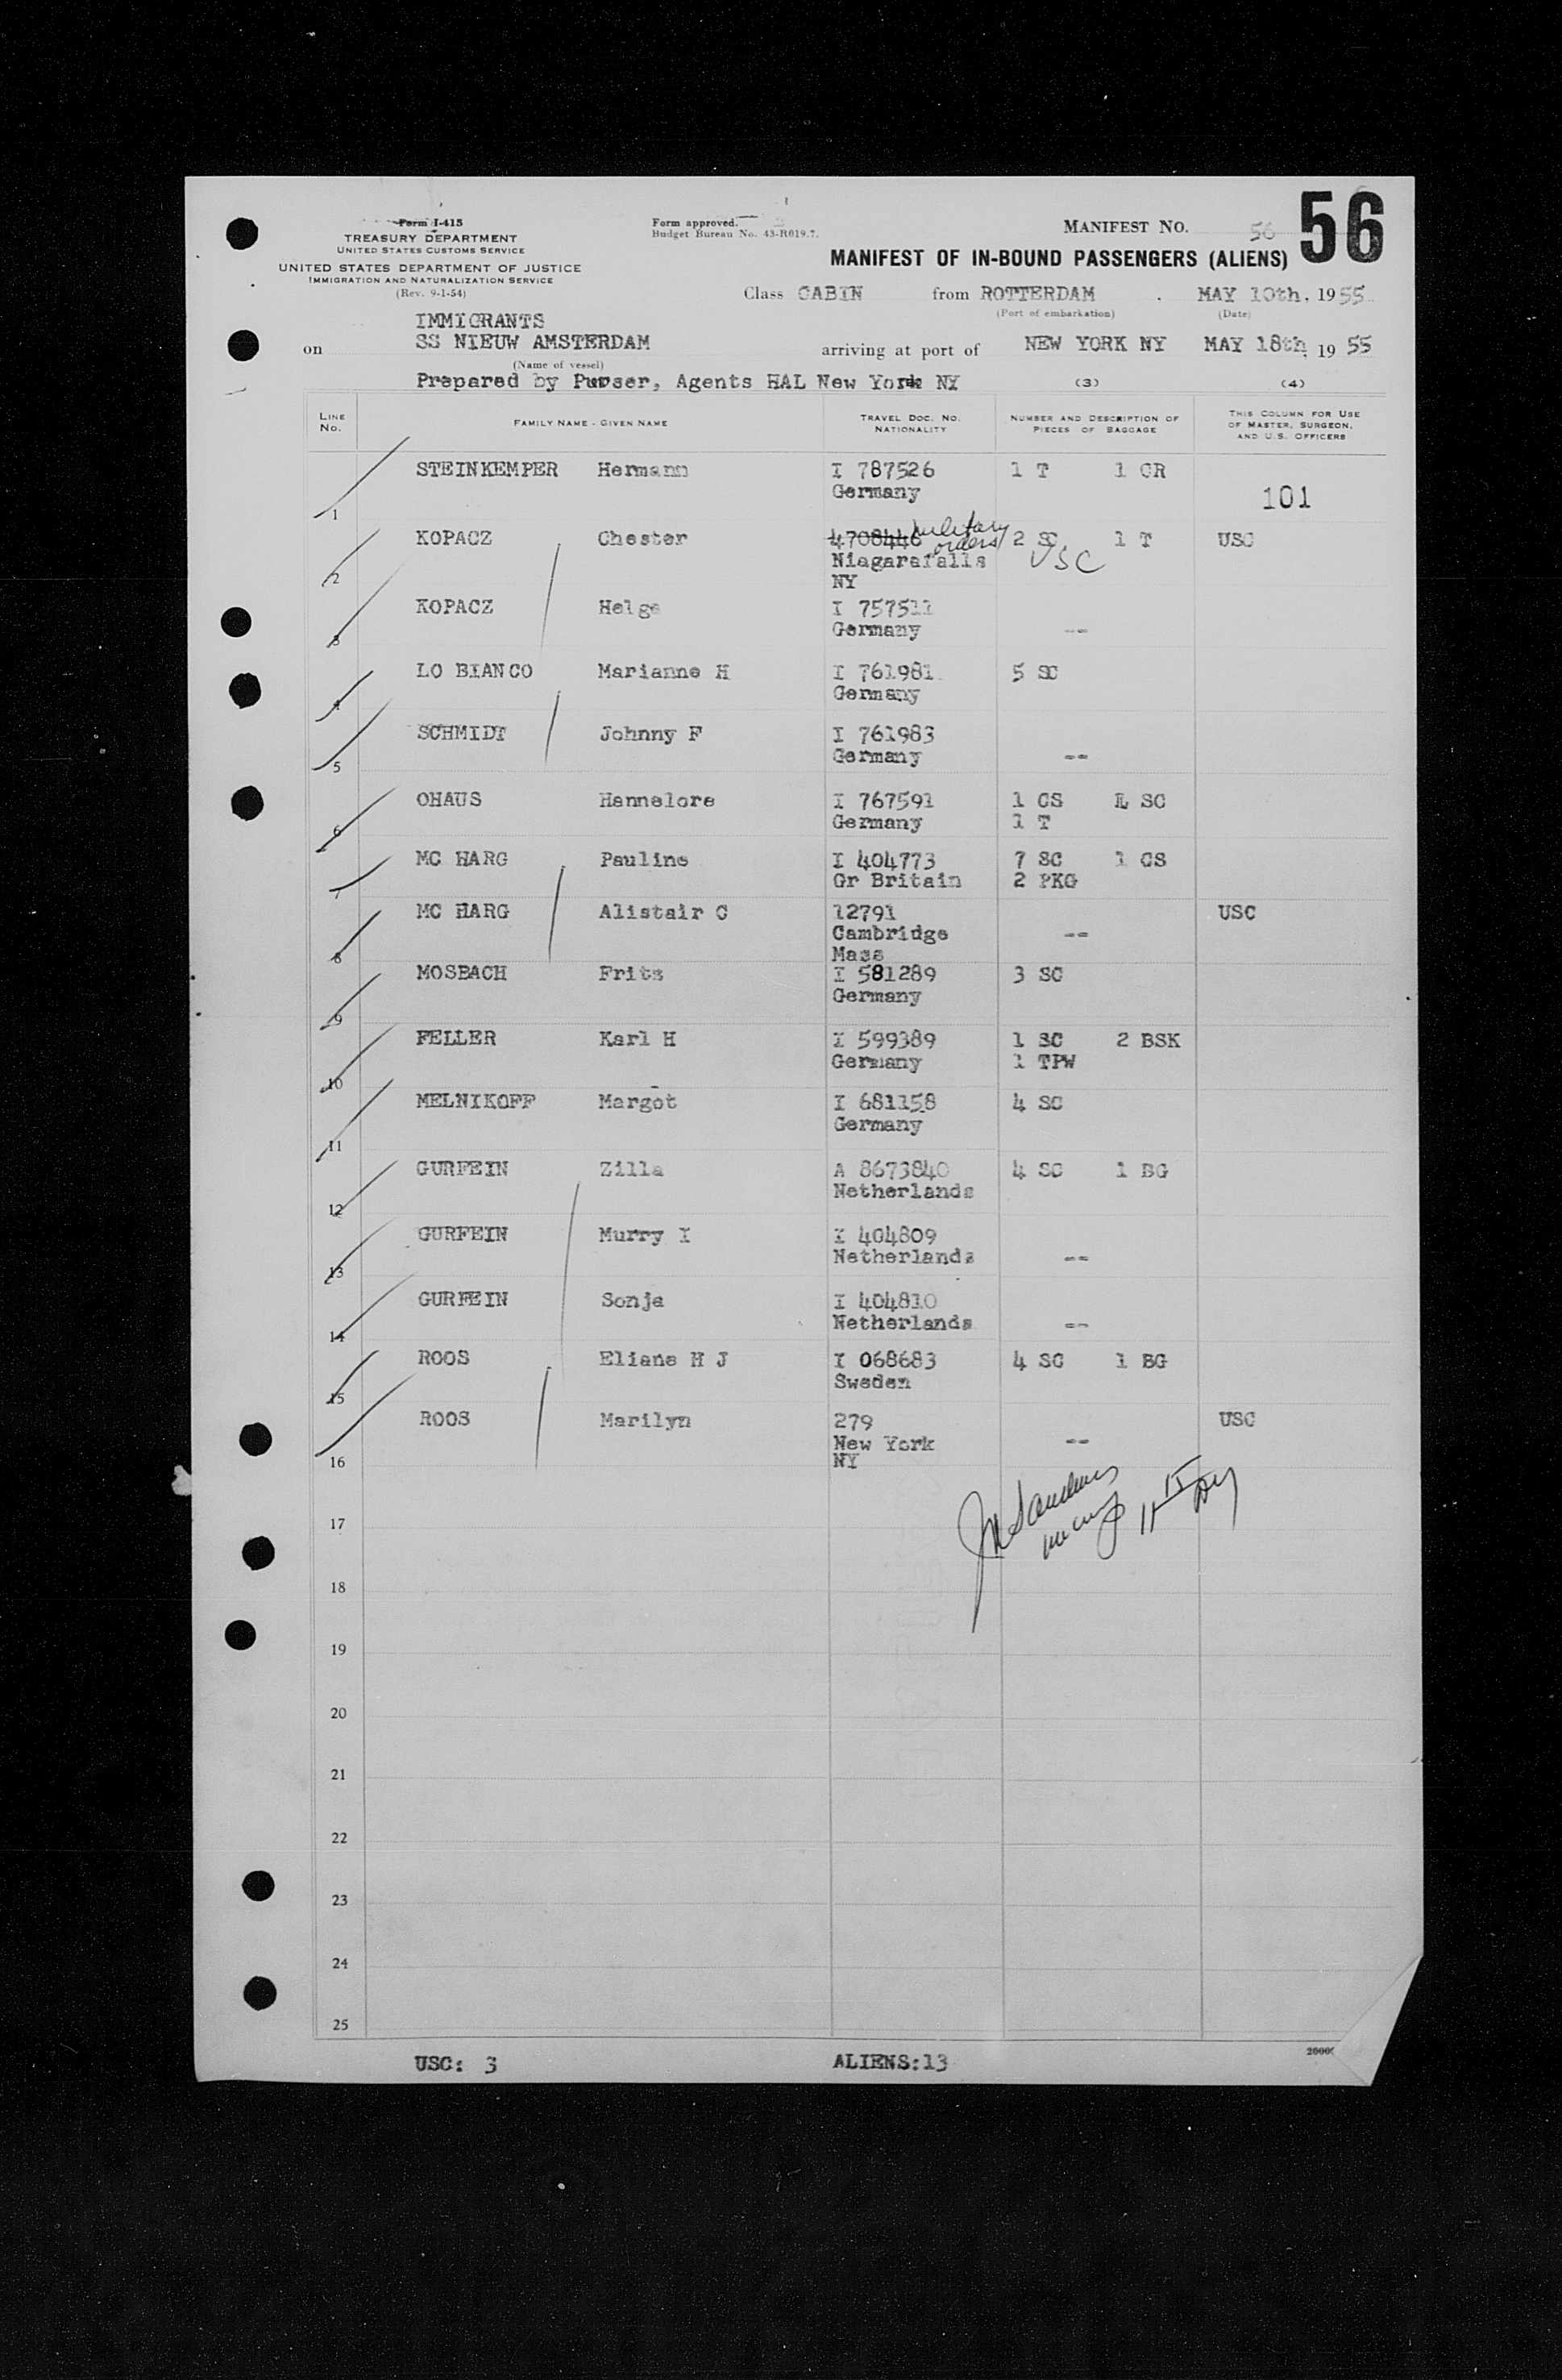 Form I-415
TREASURY DEPARTMENT
UNITED STATES CUSTOMS SERVICE
UNITED STATES DEPARTMENT OF JUSTICE
IMMIGRATION AND NATURALIZATION SERVICE
(Rev. 9-1-54)
Form approved.
Budget Bureau No. 43-R019.7.
MANIFEST NO. 56 56
MANIFEST OF IN-BOUND PASSENGERS (ALIENS)
Class CABIN from ROTTERDAM . MAY 10th, 1955
(Port of embarkation) (Date)
IMMIGRANTS
on SS NIEUW AMSTERDAM arriving at port of NEW YORK NY MAY 18th, 1955
(Name of vessel)
Prepared by Purser, Agents HAL New York NY (3) (4)
LINE NO. FAMILY NAME - GIVEN NAME TRAVEL DOC. NO. NATIONALITY NUMBER AND DESCRIPTION OF PIECES OF BAGGAGE THIS COLUMN FOR USE OF MASTER, SURGEON, AND U.S. OFFICERS
1 STEINKEMPER Hermann I 787526 1 T 1 CR
Germany 101
2 KOPACZ Chester 4708446 military orders 2 SC 1 T USC
Niagarafalls USC
NY
3 KOPACZ Helga I 757511
Germany --
4 LO BIANCO Marianne H I 761981 5 SC
Germany
5 SCHMIDT Johnny F I 761983
Germany --
6 OHAUS Hannelore I 767591 1 CS 1 SC
Germany 1 T
7 MC HARG Pauline I 404773 7 SC 1 CS
Gr Britain 2 PKG
8 MC HARG Alistair C 12791 USC
Cambridge --
Mass
9 MOSBACH Frits I 581289 3 SC
Germany
10 FELLER Karl H I 599389 1 SC 2 BSK
Germany 1 TPW
11 MELNIKOFF Margot I 681158 4 SC
Germany
12 GURFEIN Zilla A 8673840 4 SC 1 BG
Netherlands
13 GURFEIN Murry I I 404809
Netherlands --
14 GURFEIN Sonja I 404810
Netherlands --
15 ROOS Eliane H J I 068683 4 SC 1 BG
Sweden
16 ROOS Marilyn 279 USC
New York --
NY
17
18
19
20
21
22
23
24
25
USC: 3 ALIENS:13